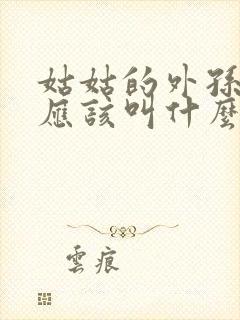 姑姑的外孫
應該叫什麼
雲痕